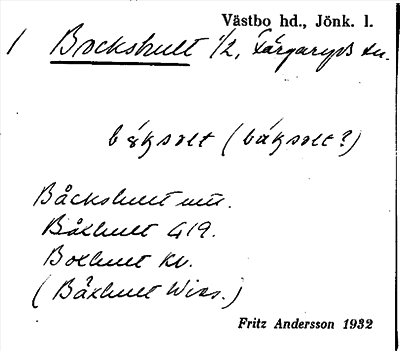 Västbo hd., Jönk. l.
1 Bockshult 1/2, Färgaryds sn.
båksolt (båksolt?)
Båckshult
Båxhult G19.
Boxhult Kv.
(Båxhult Wiss.)
Fritz Andersson 1932